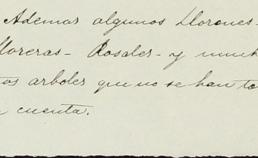 Ademas algunos Llorones-
lloreras- Rosales- y much
os arboles que no se han to
cuenta.